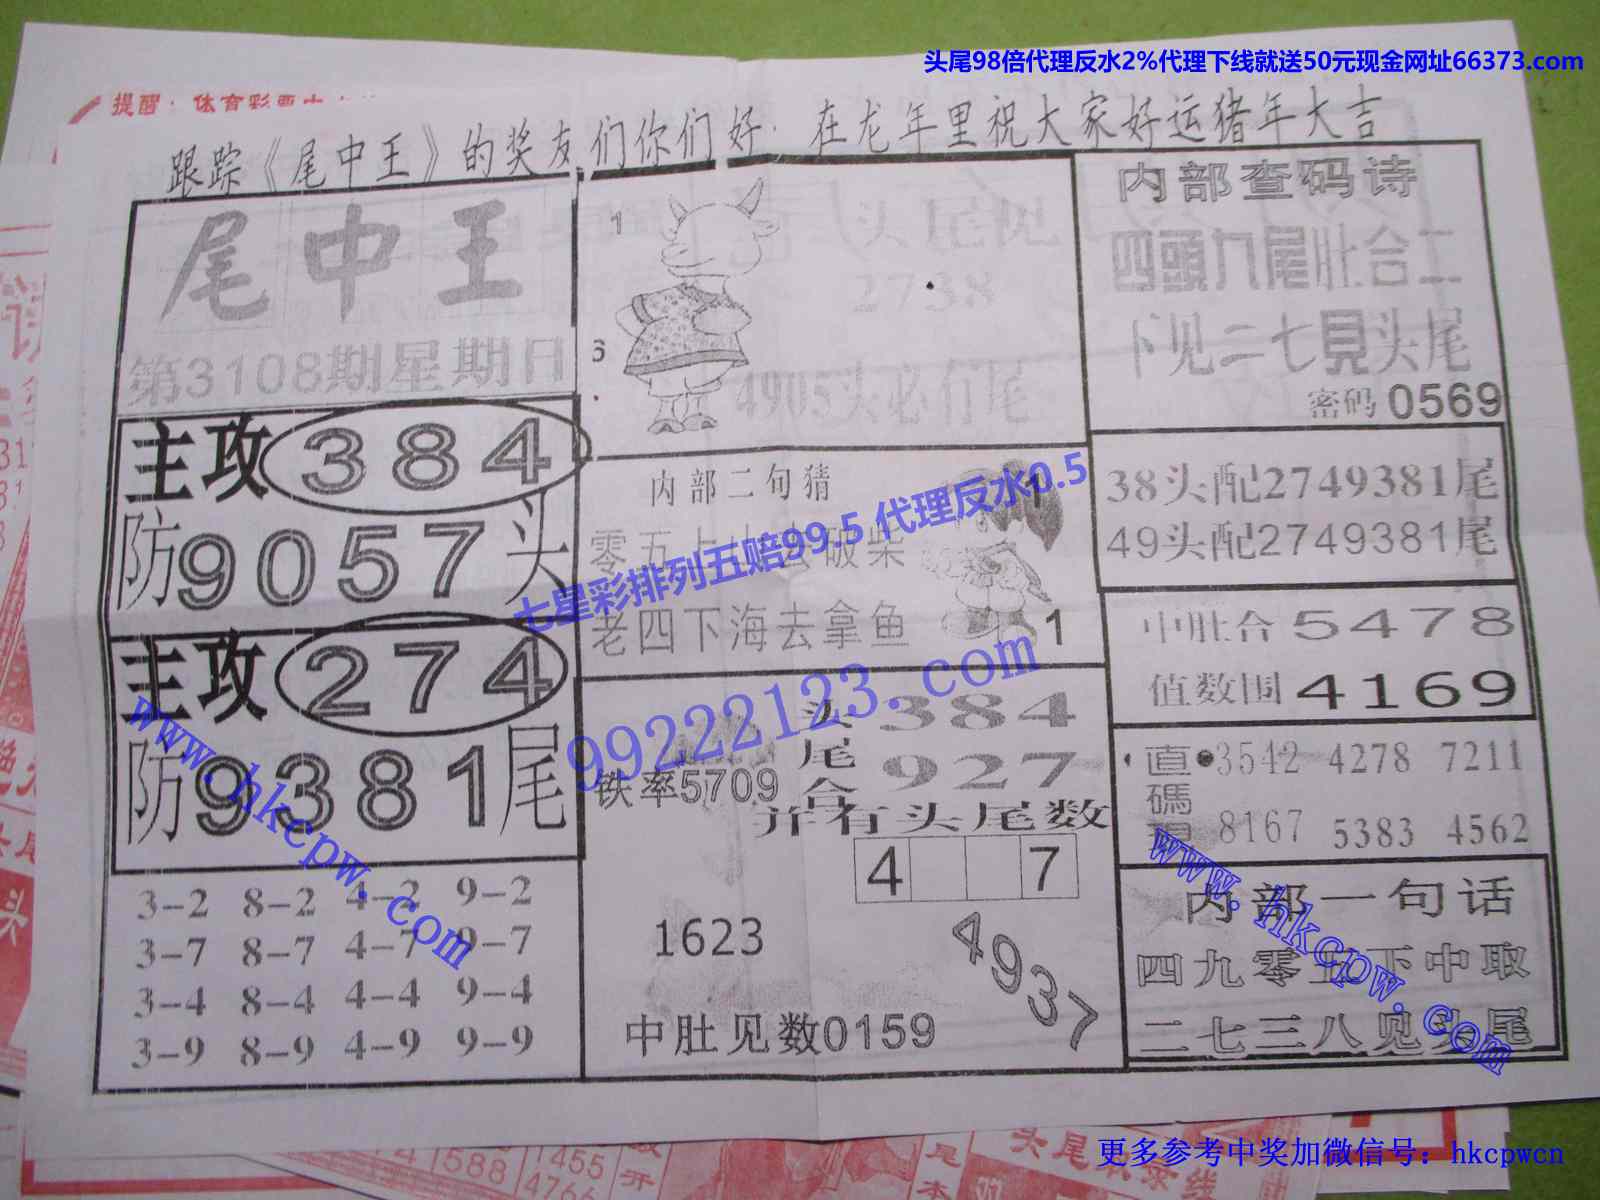 头尾98倍代理反水2%代理下线就送50元现金网址66373.com
提醒：体育彩票
跟踪《尾中王》的奖友们你们好．在龙年里祝大家好运猪年大吉
尾中王
第3108期星期日
主攻384
防9057头
主攻274
防9381尾
3-2 8-2 4-2 9-2
3-7 8-7 4-7 9-7
3-4 8-4 4-4 9-4
3-9 8-9 4-9 9-9
1
6
头尾见
2738
4905头必有尾
内部二句猜
零五上 破柴
老四下海去拿鱼
1
1
七星彩排列五赔99.5 代理反水0.5
99222123.com
头384
尾
合927
铁率5709
并有头尾数
4 7
1623
4937
中肚见数0159
内部查码诗
四頭九尾肚合二
下见二七見头尾
密码0569
38头配2749381尾
49头配2749381尾
中肚合5478
值数围4169
直碼
3542 4278 7211
8167 5383 4562
内部一句话
四九零五下中取
二七三八见头尾
www.hkcpw.com
www.hkcpw.com
588
1455
4766
开
尾
本
头尾
更多参考中奖加微信号：hkcpwcn